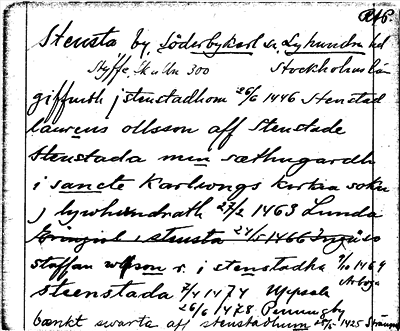 Stensta by, Söderbykarl sn, Lyhundra hd
Styffe, Sk u Un 300 Stockholms län
giffwith j stenstadhom 26/6 1446 Stenstad
laurens ollsson aff Stenstade
Stenstada min sæthugardh
i sancte Karlwngs kirkia sokn
j lywhundradh 27/2 1463 Lunda
stensta 1466
staffan r. i stenstadha 7/10 1469
Arboga
steenstada 7/4 1474 Uppsala
26/6 1478 Penningby
bænkt swarte aff stenstadhum 1425